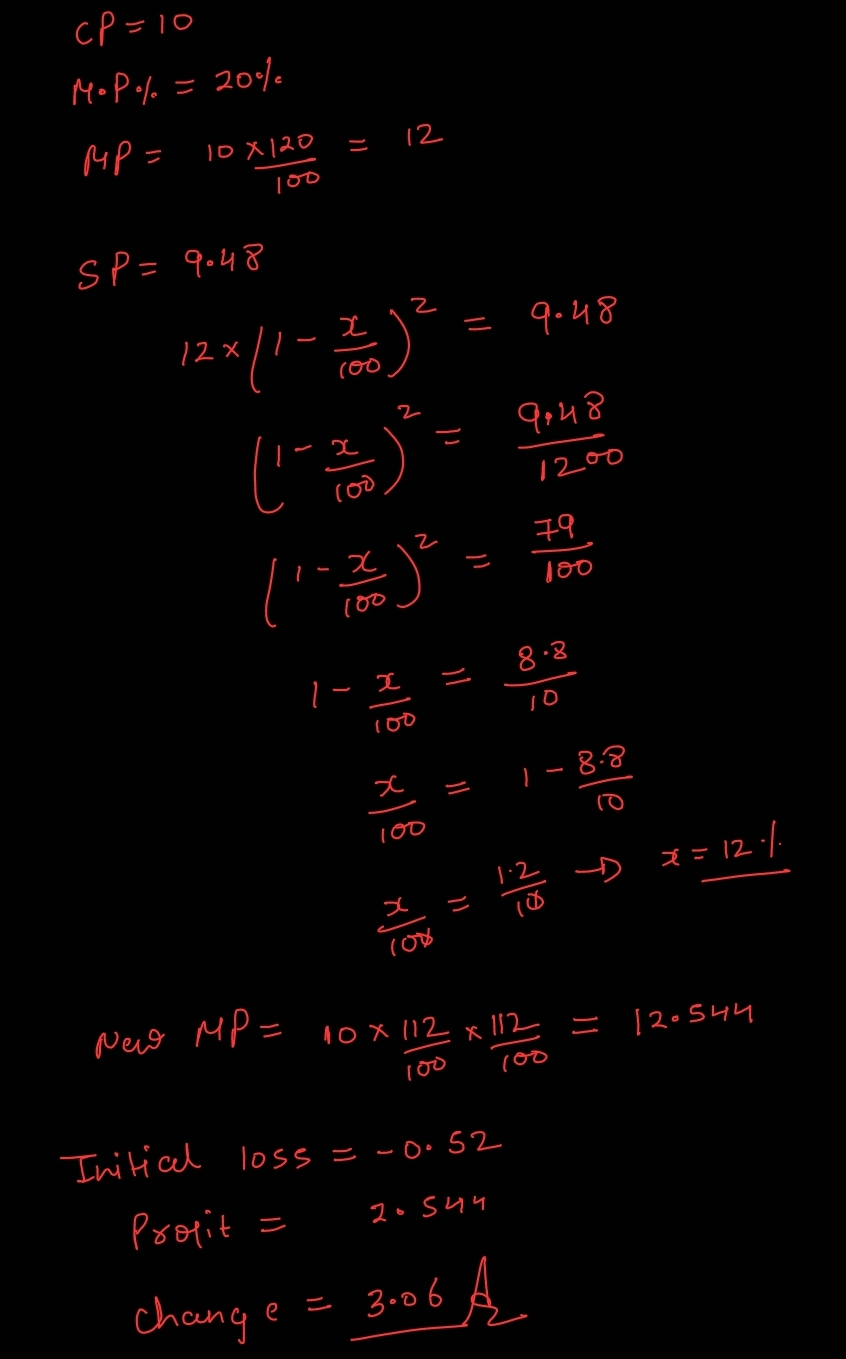 CP = 10
M.P% = 20%
MP = 10 x 120/100 = 12
SP = 9.48
12 x (1 - x/100)² = 9.48
(1 - x/100)² = 9.48/1200
(1 - x/100)² = 79/100
1 - x/100 = 8.8/10
x/100 = 1 - 8.8/10
x/100 = 1.2/10 → x = 12%
New MP = 10 x 112/100 x 112/100 = 12.544
Initial loss = -0.52
Profit = 2.544
change = 3.06 A